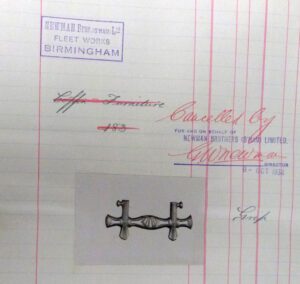 NEWMAN BROS (B'HAM) Ltd
FLEET WORKS
BIRMINGHAM
Coffin Furniture
183
Cancelled by
FOR AND ON BEHALF OF
NEWMAN BROTHERS (B'HAM) LIMITED
DIRECTOR
OCT 19